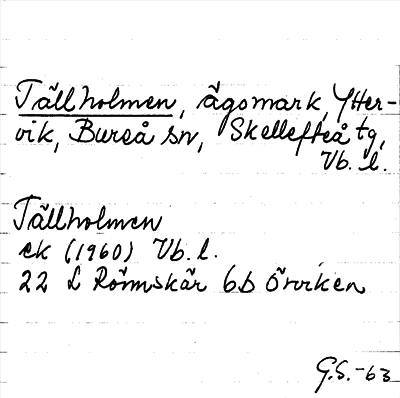 Tällholmen, ägomark, Ytter-
vik, Bureå sn, Skellefteå tg,
Vb. l.
Tällholmen
ek (1960) Vb. l.
22 L Römskär 6b Örviken
G.S. -63